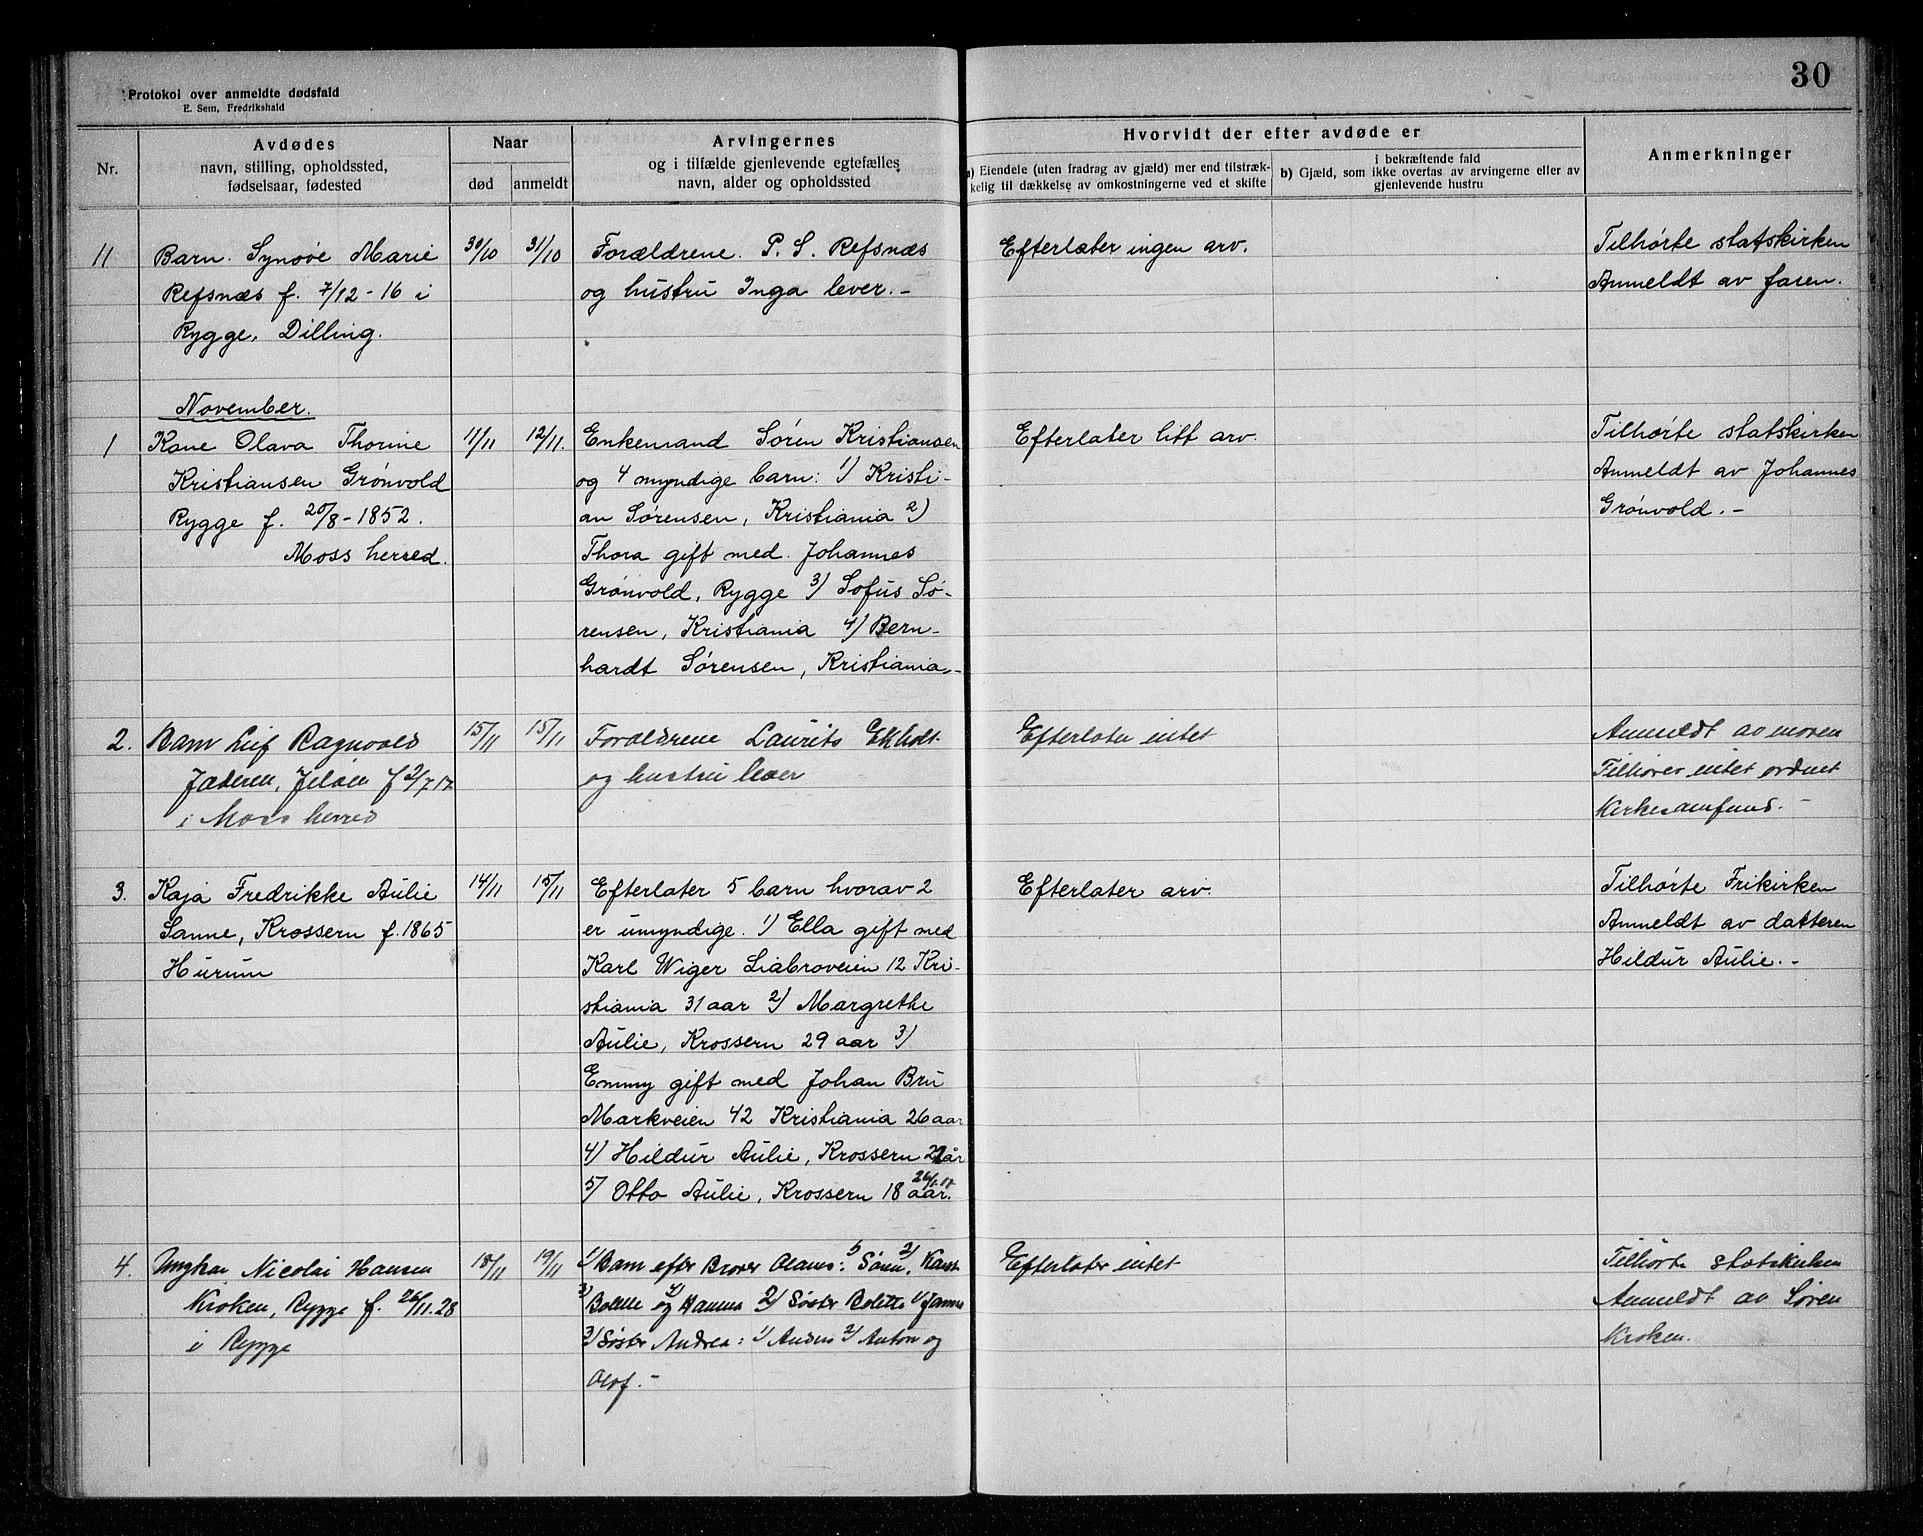 Protokol over anmeldte dødsfald
E. Sem, Fredrikshald
30
Nr.
Avdødes
navn, stilling, opholdssted,
fødselsaar, fødested
Naar
død
anmeldt
Arvingernes
og i tilfælde gjenlevende egtefælles
navn, alder og opholdssted
Hvorvidt der efter avdøde er
a) Eiendele (uten fradrag av gjæld) mer end tilstræk-
kelig til dækkelse av omkostningerne ved et skifte
i bekræftende fald
b) Gjæld, som ikke overtas av arvingerne eller av
gjenlevende hustru
Anmerkninger
11
Barn. Synøve Marie
Refsnæs f. 7/12-16 i
Rygge, Dilling.
30/10
31/10
Forældrene. P. S. Refsnæs
og hustru Inga lever.-
Efterlater ingen arv.
Tilhørte statskirken
Anmeldt av faren.
November.
1
Kone Olava Thorine
Kristiansen Grønvold
Rygge f. 20/8-1852.
Moss herred.
11/11
12/11.
Enkemand Søren Kristiansen
og 4 myndige barn: 1) Kristi-
an Sørensen, Kristiania 2)
Thora gift med Johannes
Grønvold, Rygge 3) Sofus Sø-
rensen, Kristiania 4) Bern-
hardt Sørensen, Kristiania.-
Efterlater litt arv.
Tilhørte statskirken
Anmeldt av Johannes
Grønvold.-
2.
Barn Leif Ragnvald
Jæderen, Jeløen f 2/7 17
i Moss herred
15/11
15/11
Forældrene Laurits Ekholt
og hustru lever
Efterlater intet
Anmeldt av moren
Tilhører intet ordnet
kirkesamfund.-
3.
Kaja Fredrikke Aulie
Sanne, Krossern f. 1865
Hurum
14/11
15/11
Efterlater 5 barn hvorav 2
er umyndige. 1) Ella gift med
Karl Wiger Liabroveien 12 Kri-
stiania 31 aar 2) Margrethe
Aulie, Krossern 29 aar 3)
Emmy gift med Johan Bru
Markveien 42 Kristiania 26 aar
4) Hildur Aulie, Krossern 21 år
5) Otto Aulie, Krossern 18 aar.
Efterlater arv.
Tilhørte Frikirken
Anmeldt av datteren
Hildur Aulie.-
4.
Ungkar Nicolai Hansen
Kroken, Rygge f. 26/11.28
i Rygge
18/11
19/11
1) Barn efter Brorer Olaus: 1) Søren, 2)
3) Bolette 4) og Hanna 2) Søster Bolette 1)
3) Søster Andrea: 1) Anders 2) Anton og
Olof.-
Efterlater intet
Tilhørte statskirken
Anmeldt av Søren
Kroken.